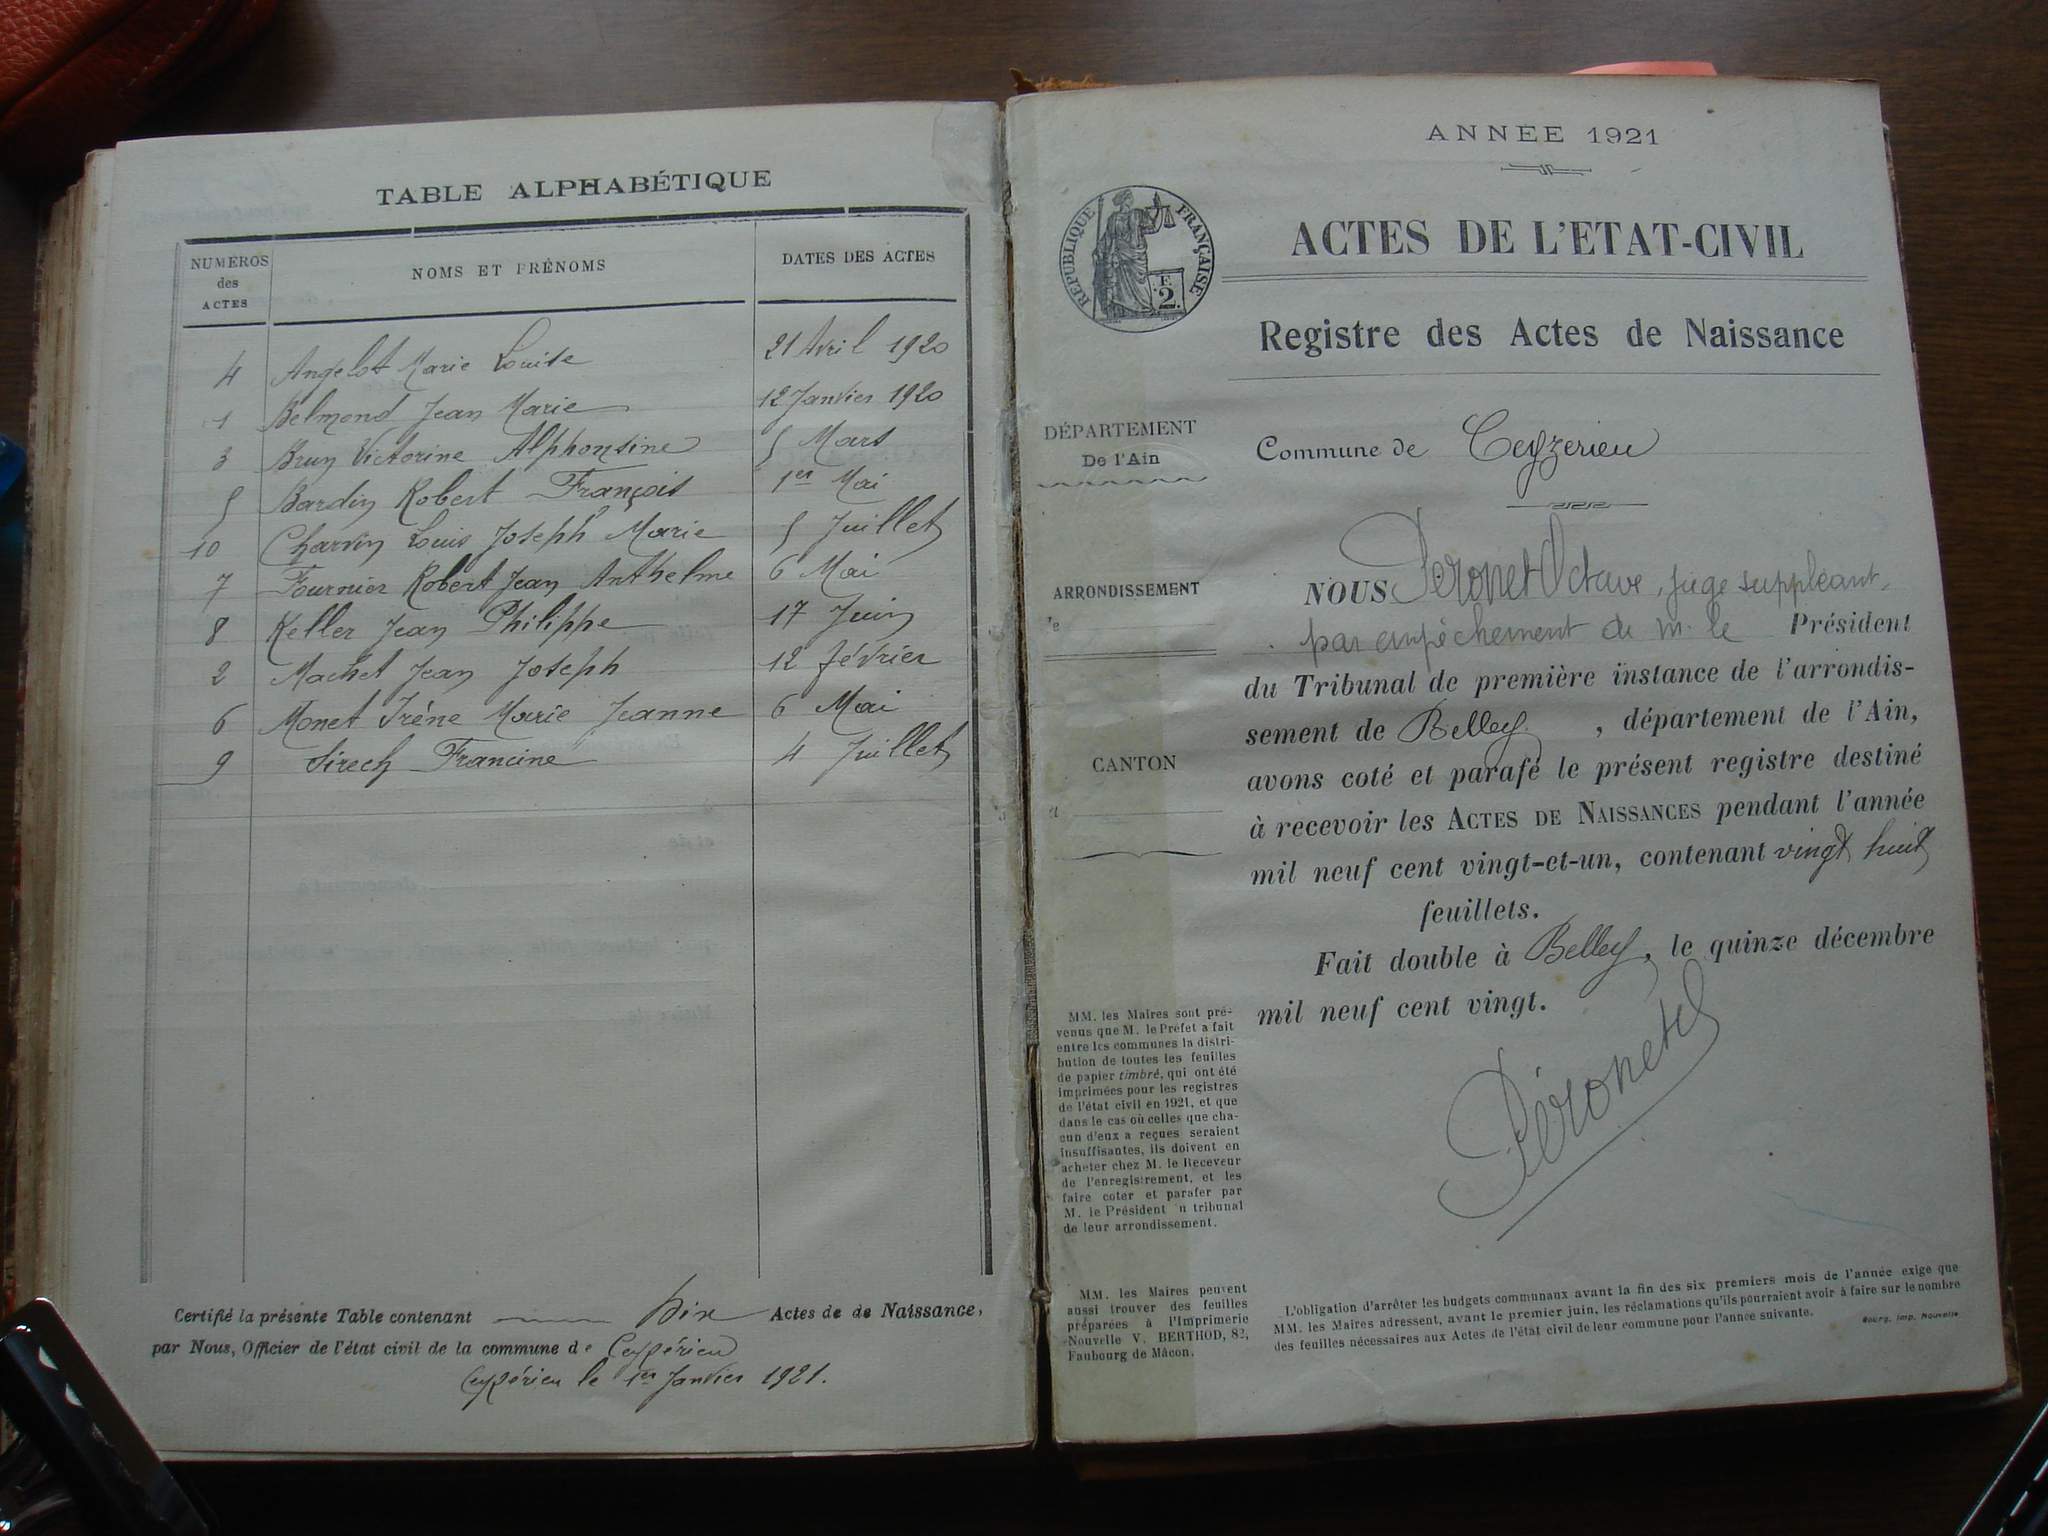 TABLE ALPHABÉTIQUE
NUMÉROS des ACTES
NOMS ET PRÉNOMS
DATES DES ACTES
4 Angelot Marie Louise 21 Avril 1920
1 Belmond Jean Marie 12 Janvier 1920
3 Brun Victorine Alphonsine 5 Mars
5 Bardin Robert François 1er Mai
10 Charvin Louis Joseph Marie 5 Juillet
7 Fournier Robert Jean Anthelme 6 Mai
8 Keller Jean Philippe 17 Juin
2 Machet Jean Joseph 12 février
6 Monet Irène Marie Jeanne 6 Mai
9 Sirech Francine 4 Juillet
Certifié la présente Table contenant Dix Actes de de Naissance,
par Nous, Officier de l'état civil de la commune de Ceyzérieu
Ceyzérieu le 1er Janvier 1921.
ANNÉE 1921
RÉPUBLIQUE FRANÇAISE
F. 2.
ACTES DE L'ETAT-CIVIL
Registre des Actes de Naissance
DÉPARTEMENT
De l'Ain
Commune de Ceyzerieu
ARRONDISSEMENT
CANTON
NOUS Péronet Octave, juge suppléant,
par empêchement de M. le Président
du Tribunal de première instance de l'arrondis-
sement de Belley, département de l'Ain,
avons coté et parafé le présent registre destiné
à recevoir les ACTES DE NAISSANCES pendant l'année
mil neuf cent vingt-et-un, contenant vingt huit
feuillets.
Fait double à Belley, le quinze décembre
mil neuf cent vingt.
Péronet
MM. les Maires sont pré-
venus que M. le Préfet a fait
entre les communes la distri-
bution de toutes les feuilles
de papier timbré, qui ont été
imprimées pour les registres
de l'état civil en 1921, et que
dans le cas où celles que cha-
cun d'eux a reçues seraient
insuffisantes, ils doivent en
acheter chez M. le Receveur
de l'enregistrement, et les
faire coter et parafer par
M. le Président n tribunal
de leur arrondissement.
MM. les Maires peuvent
aussi trouver des feuilles
préparées à l'Imprimerie
Nouvelle V. BERTHOD, 82,
Faubourg de Mâcon.
L'obligation d'arrêter les budgets communaux avant la fin des six premiers mois de l'année exige que
MM. les Maires adressent, avant le premier juin, les réclamations qu'ils pourraient avoir à faire sur le nombre
des feuilles nécessaires aux Actes de l'état civil de leur commune pour l'année suivante.
Bourg, Imp. Nouvelle